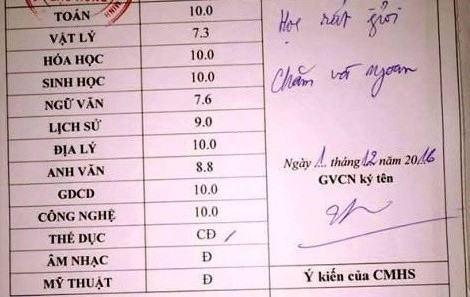 TOÁN 10.0
VẬT LÝ 7.3
HÓA HỌC 10.0
SINH HỌC 10.0
NGỮ VĂN 7.6
LỊCH SỬ 9.0
ĐỊA LÝ 10.0
ANH VĂN 8.8
GDCD 10.0
CÔNG NGHỆ 10.0
THỂ DỤC CĐ
ÂM NHẠC Đ
MỸ THUẬT Đ
Học rất giỏi
Chăm và ngoan
Ngày 1 tháng 12 năm 2016
GVCN ký tên
Ý kiến của CMHS